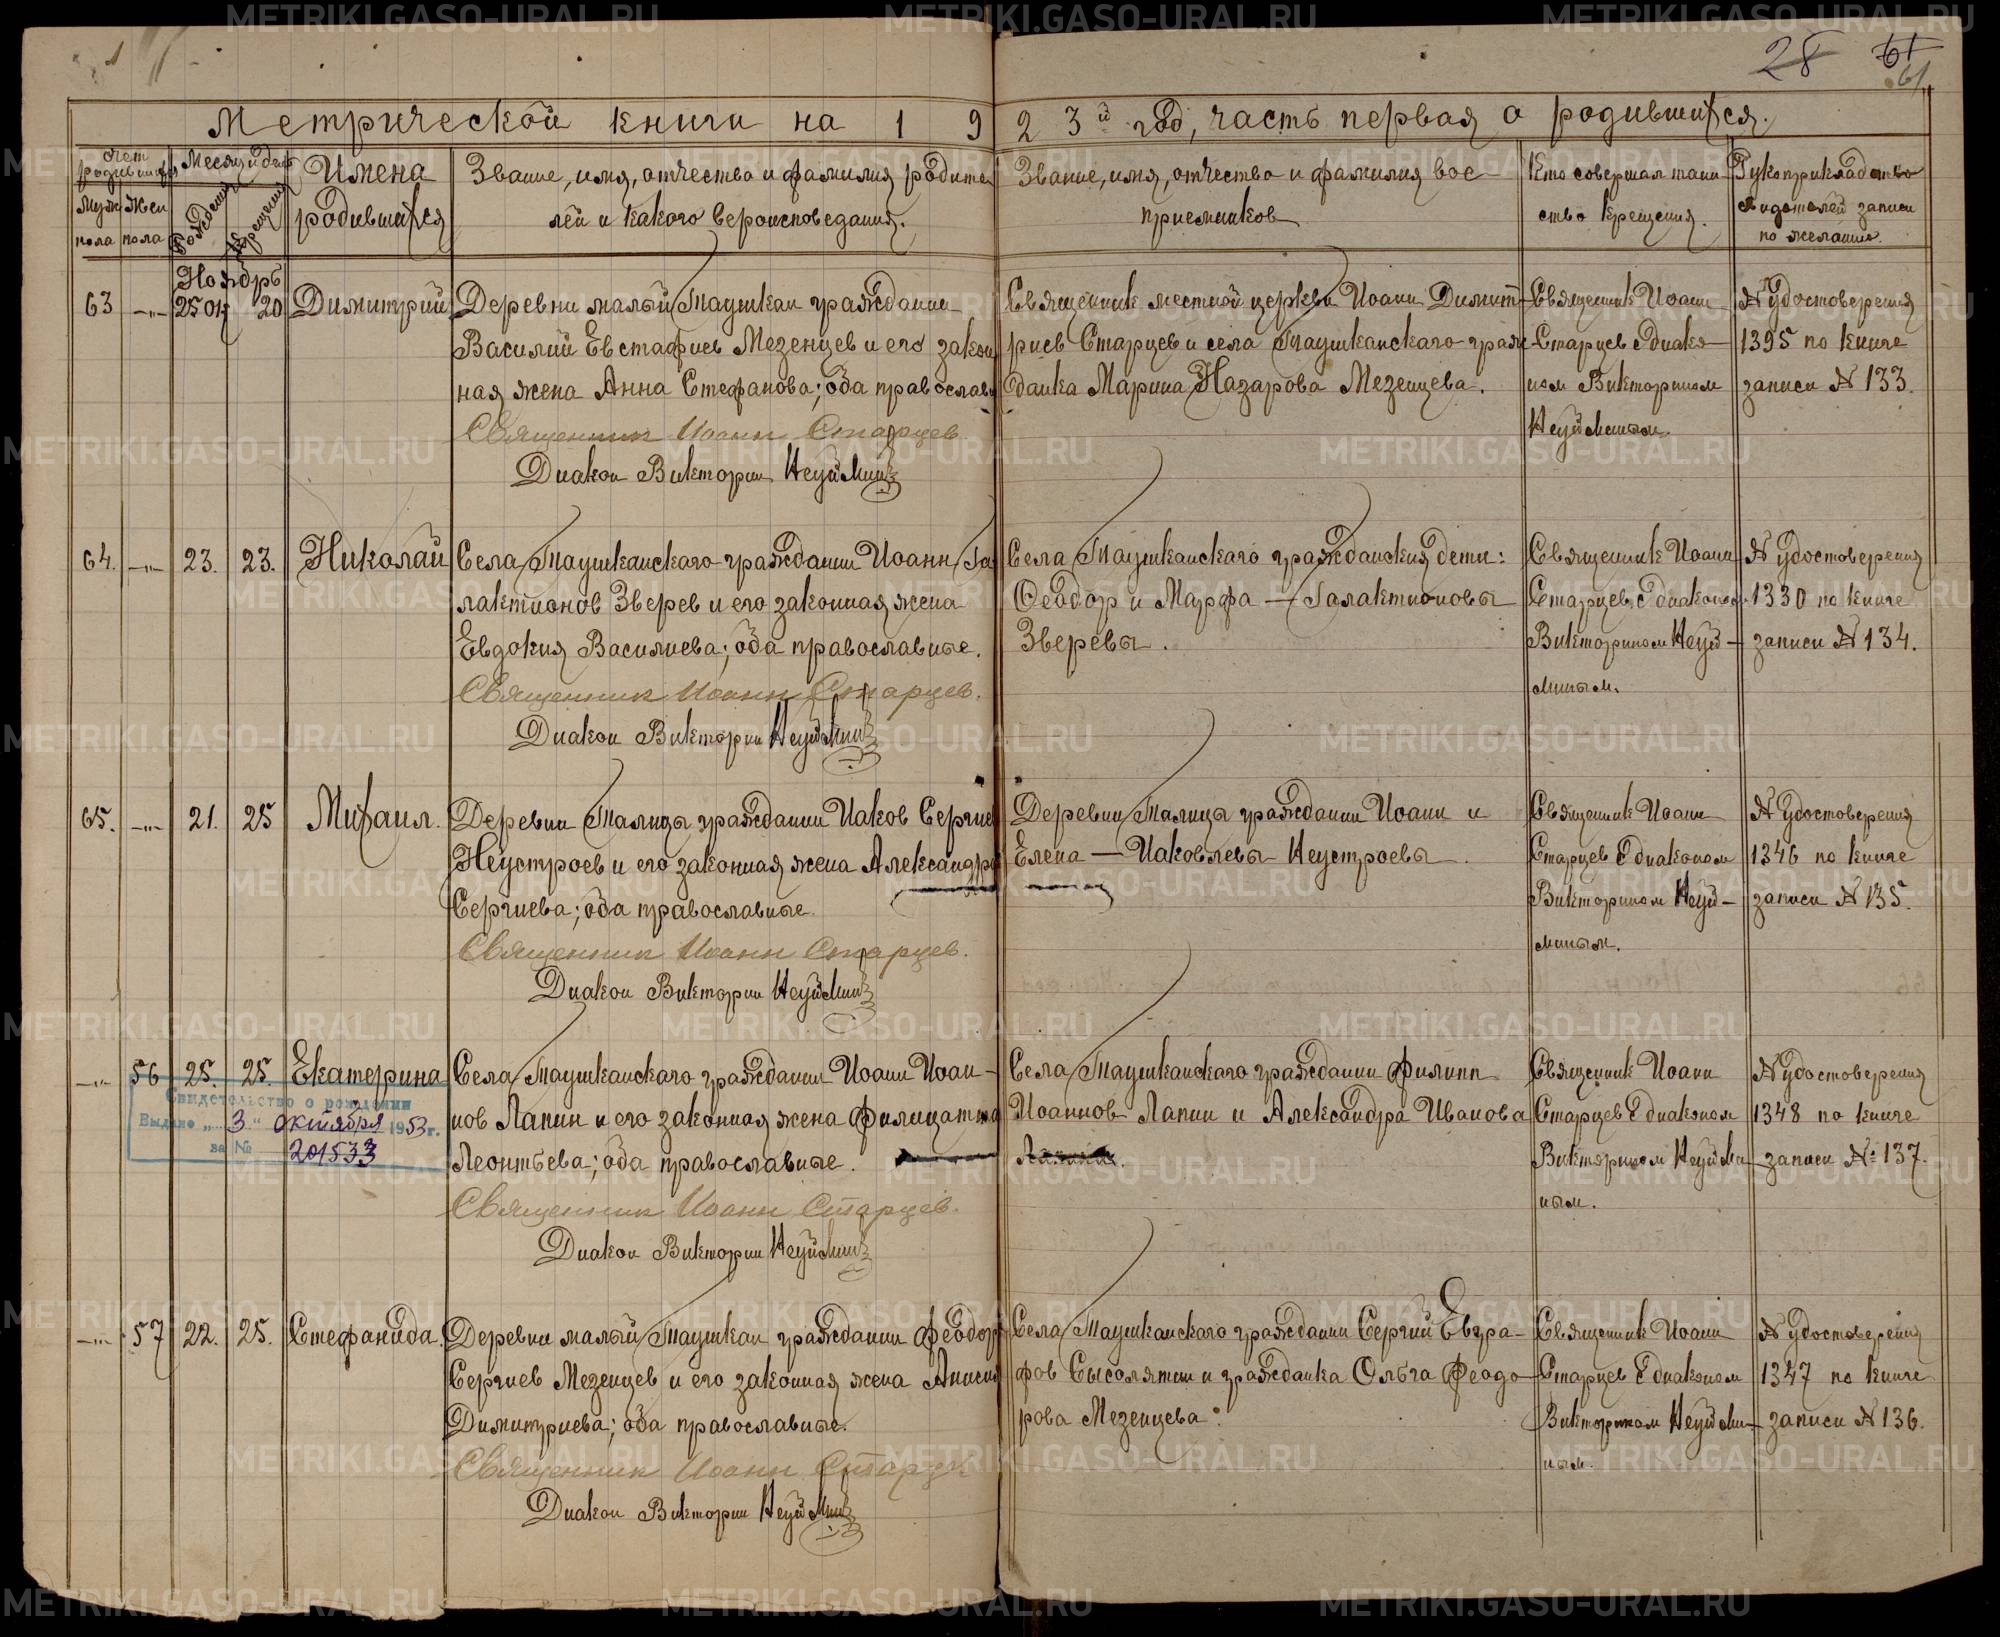 28 61
61
Метрической книги на 1923й год, часть первая о родившихся.
Счет родившихся
Муж пола
Жен пола
Месяц и день
Рождения
Крещения
Имена родившихся
Звание, имя, отчество и фамилия родите
лей и какого вероисповедания.
Звание, имя, отчество и фамилия вос
приемников
Кто совершал таин
ство крещения.
Рукоприкладство
свидетелей записи
по желанию.
Ноябрь
63 —"— 25 окт 20 Димитрий
Деревни малый Таушкан гражданин
Василий Евстафиев Мезенцев и его закон
ная жена Анна Стефанова; оба православн
Священник Иоанн Старцев
Диакон Викторин Неуймин
Священник местной церкви Иоанн Димит-
риев Старцев и села Таушканскаго граж
данка Марина Назарова Мезенцева.
Священник Иоанн
Старцев с диако-
ном Викторином
Неуйминым
№ удостоверения
1395 по книге
записи № 133.
64. —"— 23. 23. Николай
Села Таушканскаго гражданин Иоанн Га
лактионов Зверев и его законная жена
Евдокия Василиева; оба православные.
Священник Иоанн Старцев.
Диакон Викторин Неуймин
Села Таушканскаго гражданския дети:
Феодор и Марфа — Галактионовы
Зверевы.
Священник Иоанн
Старцев с диаконом
Викторином Неуй-
миным.
№ удостоверения
1330 по книге
записи № 134.
65. —"— 21. 25 Михаил.
Деревни Талицы гражданин Иаков Сергие
Неустроев и его законная жена Александра
Сергиева; оба православные.
Священник Иоанн Старцев.
Диакон Викторин Неуймин
Деревни Талицы гражданин Иоанн и
Елена — Иаковлевы Неустроевы.
Священник Иоанн
Старцев с диаконом
Викторином Неуй-
миным.
№ удостоверения
1346 по книге
записи № 135.
—"— 56 25. 25. Екатерина
Свидетельство о рождении
Выдано „3" октября 1953 г.
за № 201533
Села Таушканскаго гражданин Иоанн Иоан-
нов Лапин и его законная жена Филицатта
Леонтьева; оба православные.
Священник Иоанн Старцев.
Диакон Викторин Неуймин
Села Таушканскаго гражданин Филипп
Иоаннов Лапин и Александра Иванова
Лапины.
Священник Иоанн
Старцев с диаконом
Викторином Неуйми
ным.
№ удостоверения
1348 по книге
записи № 137.
—"— 57 22. 25. Стефанида.
Деревни малый Таушкан гражданин Феодор
Сергиев Мезенцев и его законная жена Анисия
Димитриева; оба православные.
Священник Иоанн Старце
Диакон Викторин Неуймин
Села Таушканскаго гражданин Сергий Евгра-
фов Сысолятин и гражданка Ольга Феодо
рова Мезенцева.
Священник Иоанн
Старцев с диаконом
Викторином Неуйми-
ным.
№ удостоверения
1347 по книге
записи № 136.
METRIKI.GASO-URAL.RU